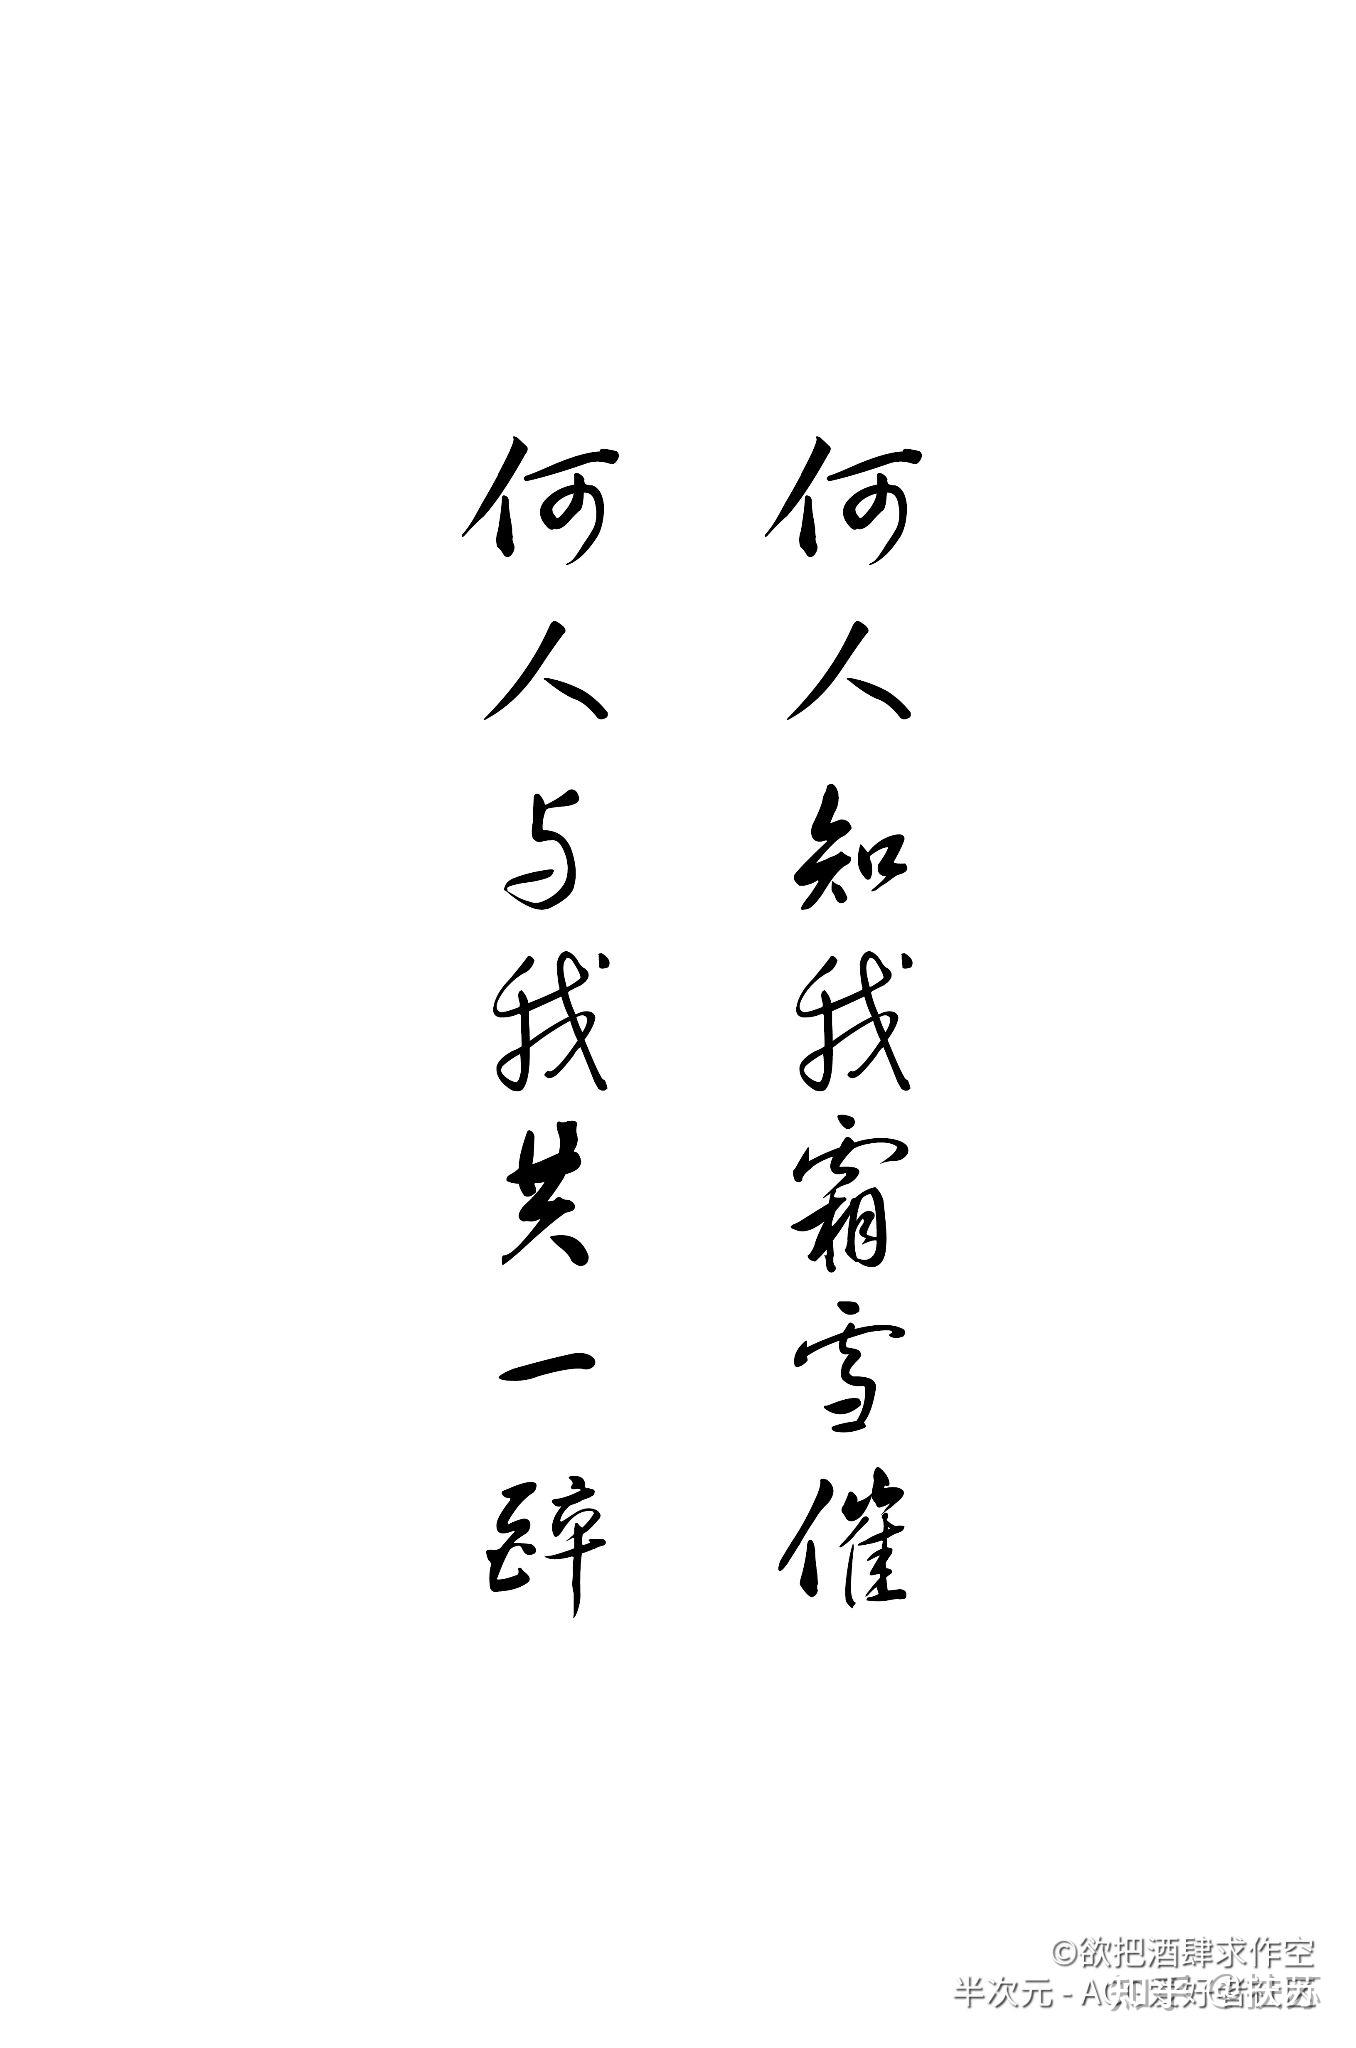 何人知我霜雪催
何人与我共一醉
©欲把酒肆求作空
半次元 - AC